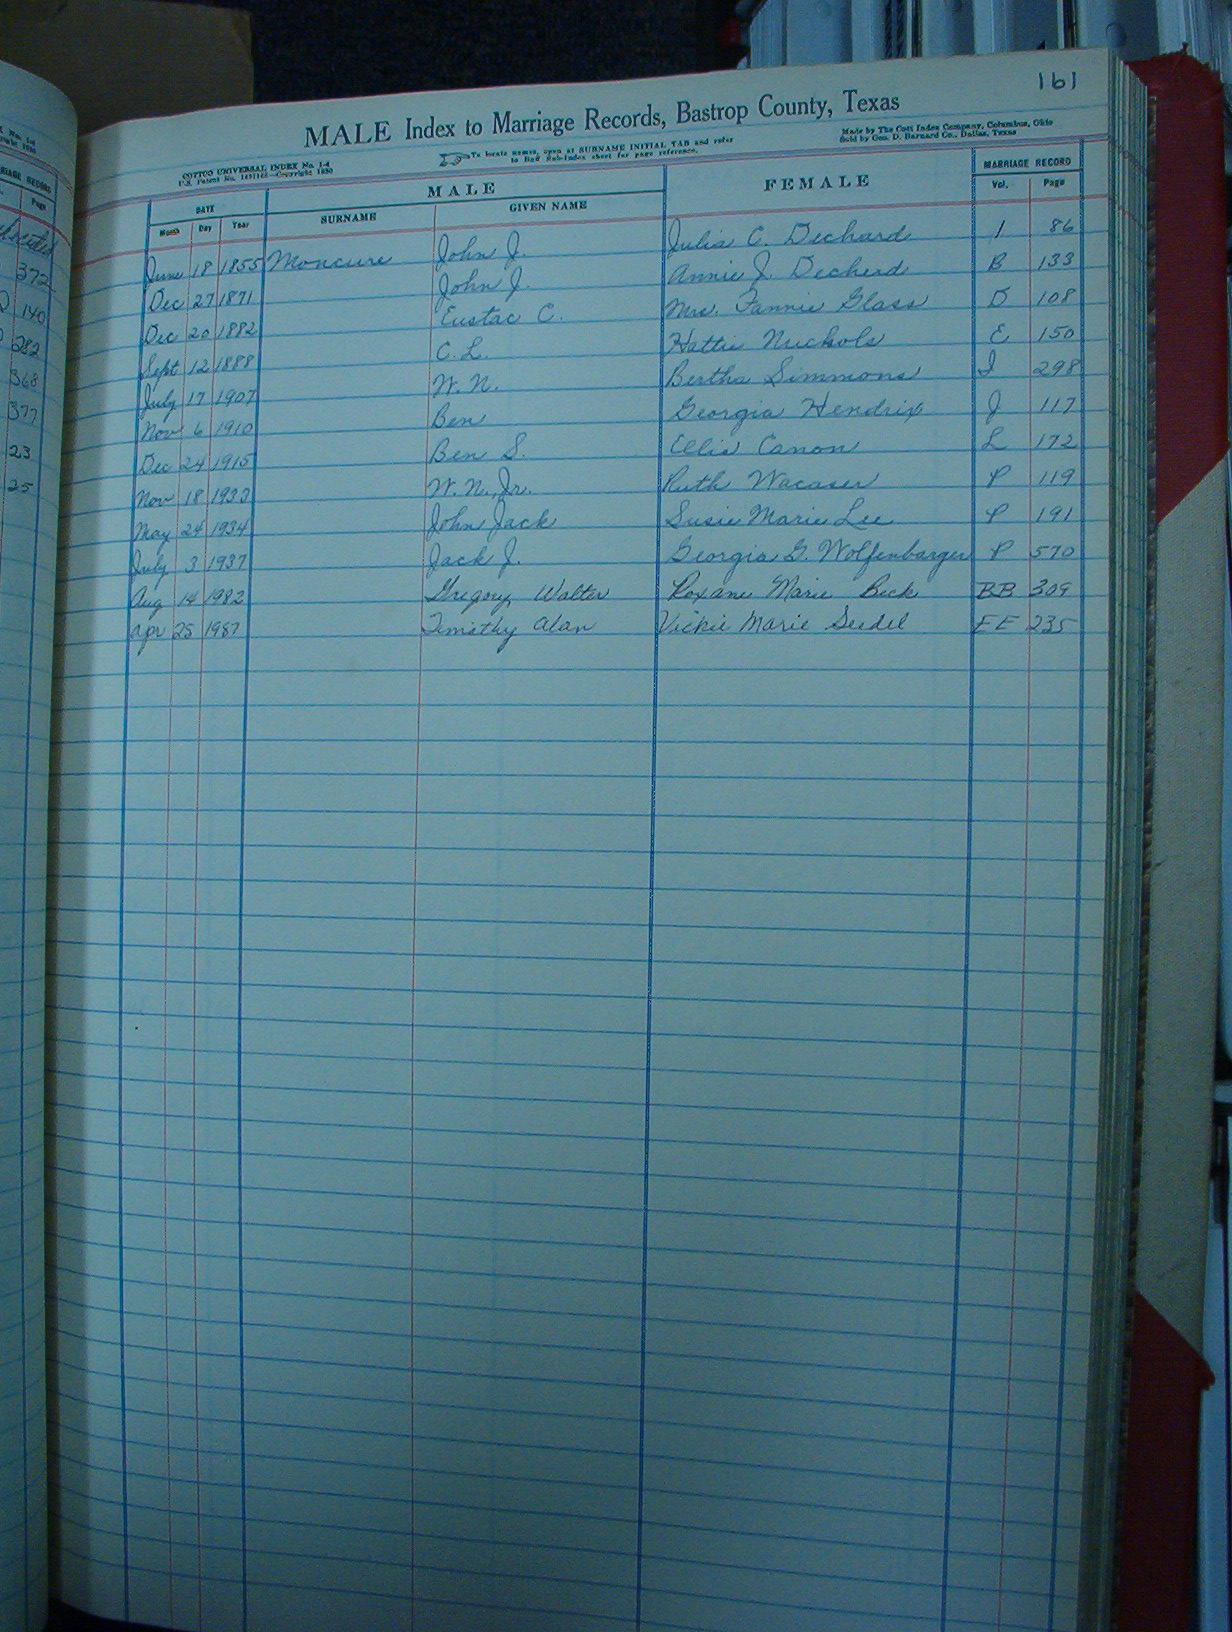 161
MALE Index to Marriage Records, Bastrop County, Texas
COTTCO UNIVERSAL INDEX No. 1-4
To locate names, open at SURNAME INITIAL TAB and refer
to Buff Sub-Index sheet for page reference.
Made by The Cott Index Company, Columbus, Ohio
Sold by Geo. D. Barnard Co., Dallas, Texas
DATE MALE FEMALE MARRIAGE RECORD
Month Day Year SURNAME GIVEN NAME Vol. Page
June 18 1855 Moncure John J. Julia C. Dechard 1 86
Dec 27 1871 John J. Annie J. Decherd B 133
Dec 20 1882 Eustac C. Mrs. Fannie Glass D 108
Sept 12 1888 C. L. Hattie Nuchols E 150
July 17 1907 W. N. Bertha Simmons I 298
Nov 6 1910 Ben Georgia Hendrix J 117
Dec 24 1915 Ben S. Ellis Canon L 172
Nov 18 W. N., Jr. Ruth Wacaser P 119
May 24 1934 John Jack Susie Marie Lee P 191
July 3 1937 Jack J. Georgia G. Wolfenbarger P 570
Aug 14 1982 Gregory Walter Roxane Marie Beck BB 309
Apr 25 1987 Timothy Alan Vickie Marie Seidel EE 235
RECORD
Page
372
140
282
368
377
23
25